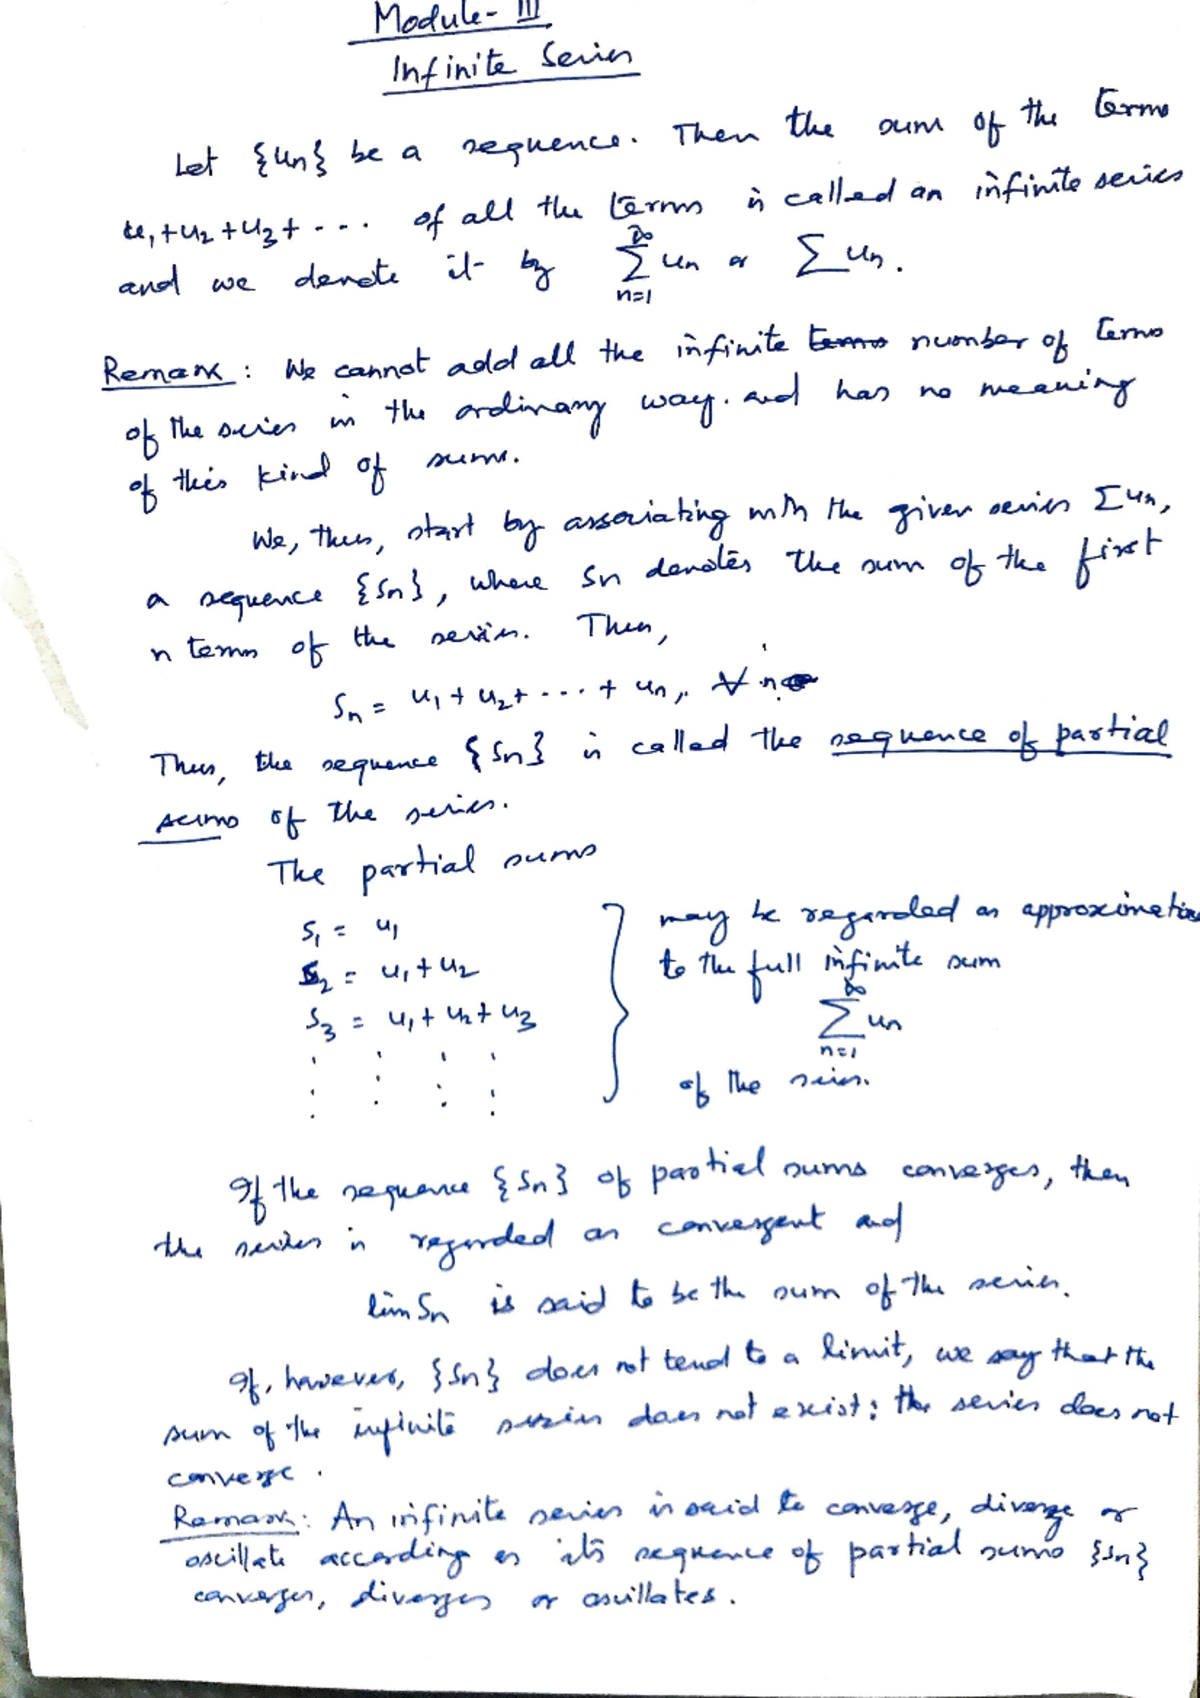 Module- III
Infinite Series
Let {un} be a sequence. Then the sum of the terms
u₁+u₂+u₃+ - - . of all the terms is called an infinite series
and we denote it by ∞∑n=1 un or ∑ un.
Remark : We cannot add all the infinite terms number of terms
of the series in the ordinary way. and has no meaning
of this kind of sums.
We, thus, start by associating with the given series ∑un,
a sequence {Sn}, where Sn denotes the sum of the first
n terms of the series. Then,
Sn = u₁ + u₂+ - - - . + un, ∀ n
Thus, the sequence {Sn} is called the sequence of partial
sums of the series.
The partial sums
S₁ = u₁
S₂ = u₁+u₂
S₃ = u₁+u₂+u₃
may be regarded as approximations
to the full infinite sum
∞∑n=1 un
of the series.
If the sequence {Sn} of partial sums converges, then
the series is regarded as convergent and
lim Sn is said to be the sum of the series.
If, however, {Sn} does not tend to a limit, we say that the
sum of the infinite series does not exist; the series does not
converge .
Remark: An infinite series is said to converge, diverge or
oscillate according as its sequence of partial sums {Sn}
converges, diverges or oscillates.